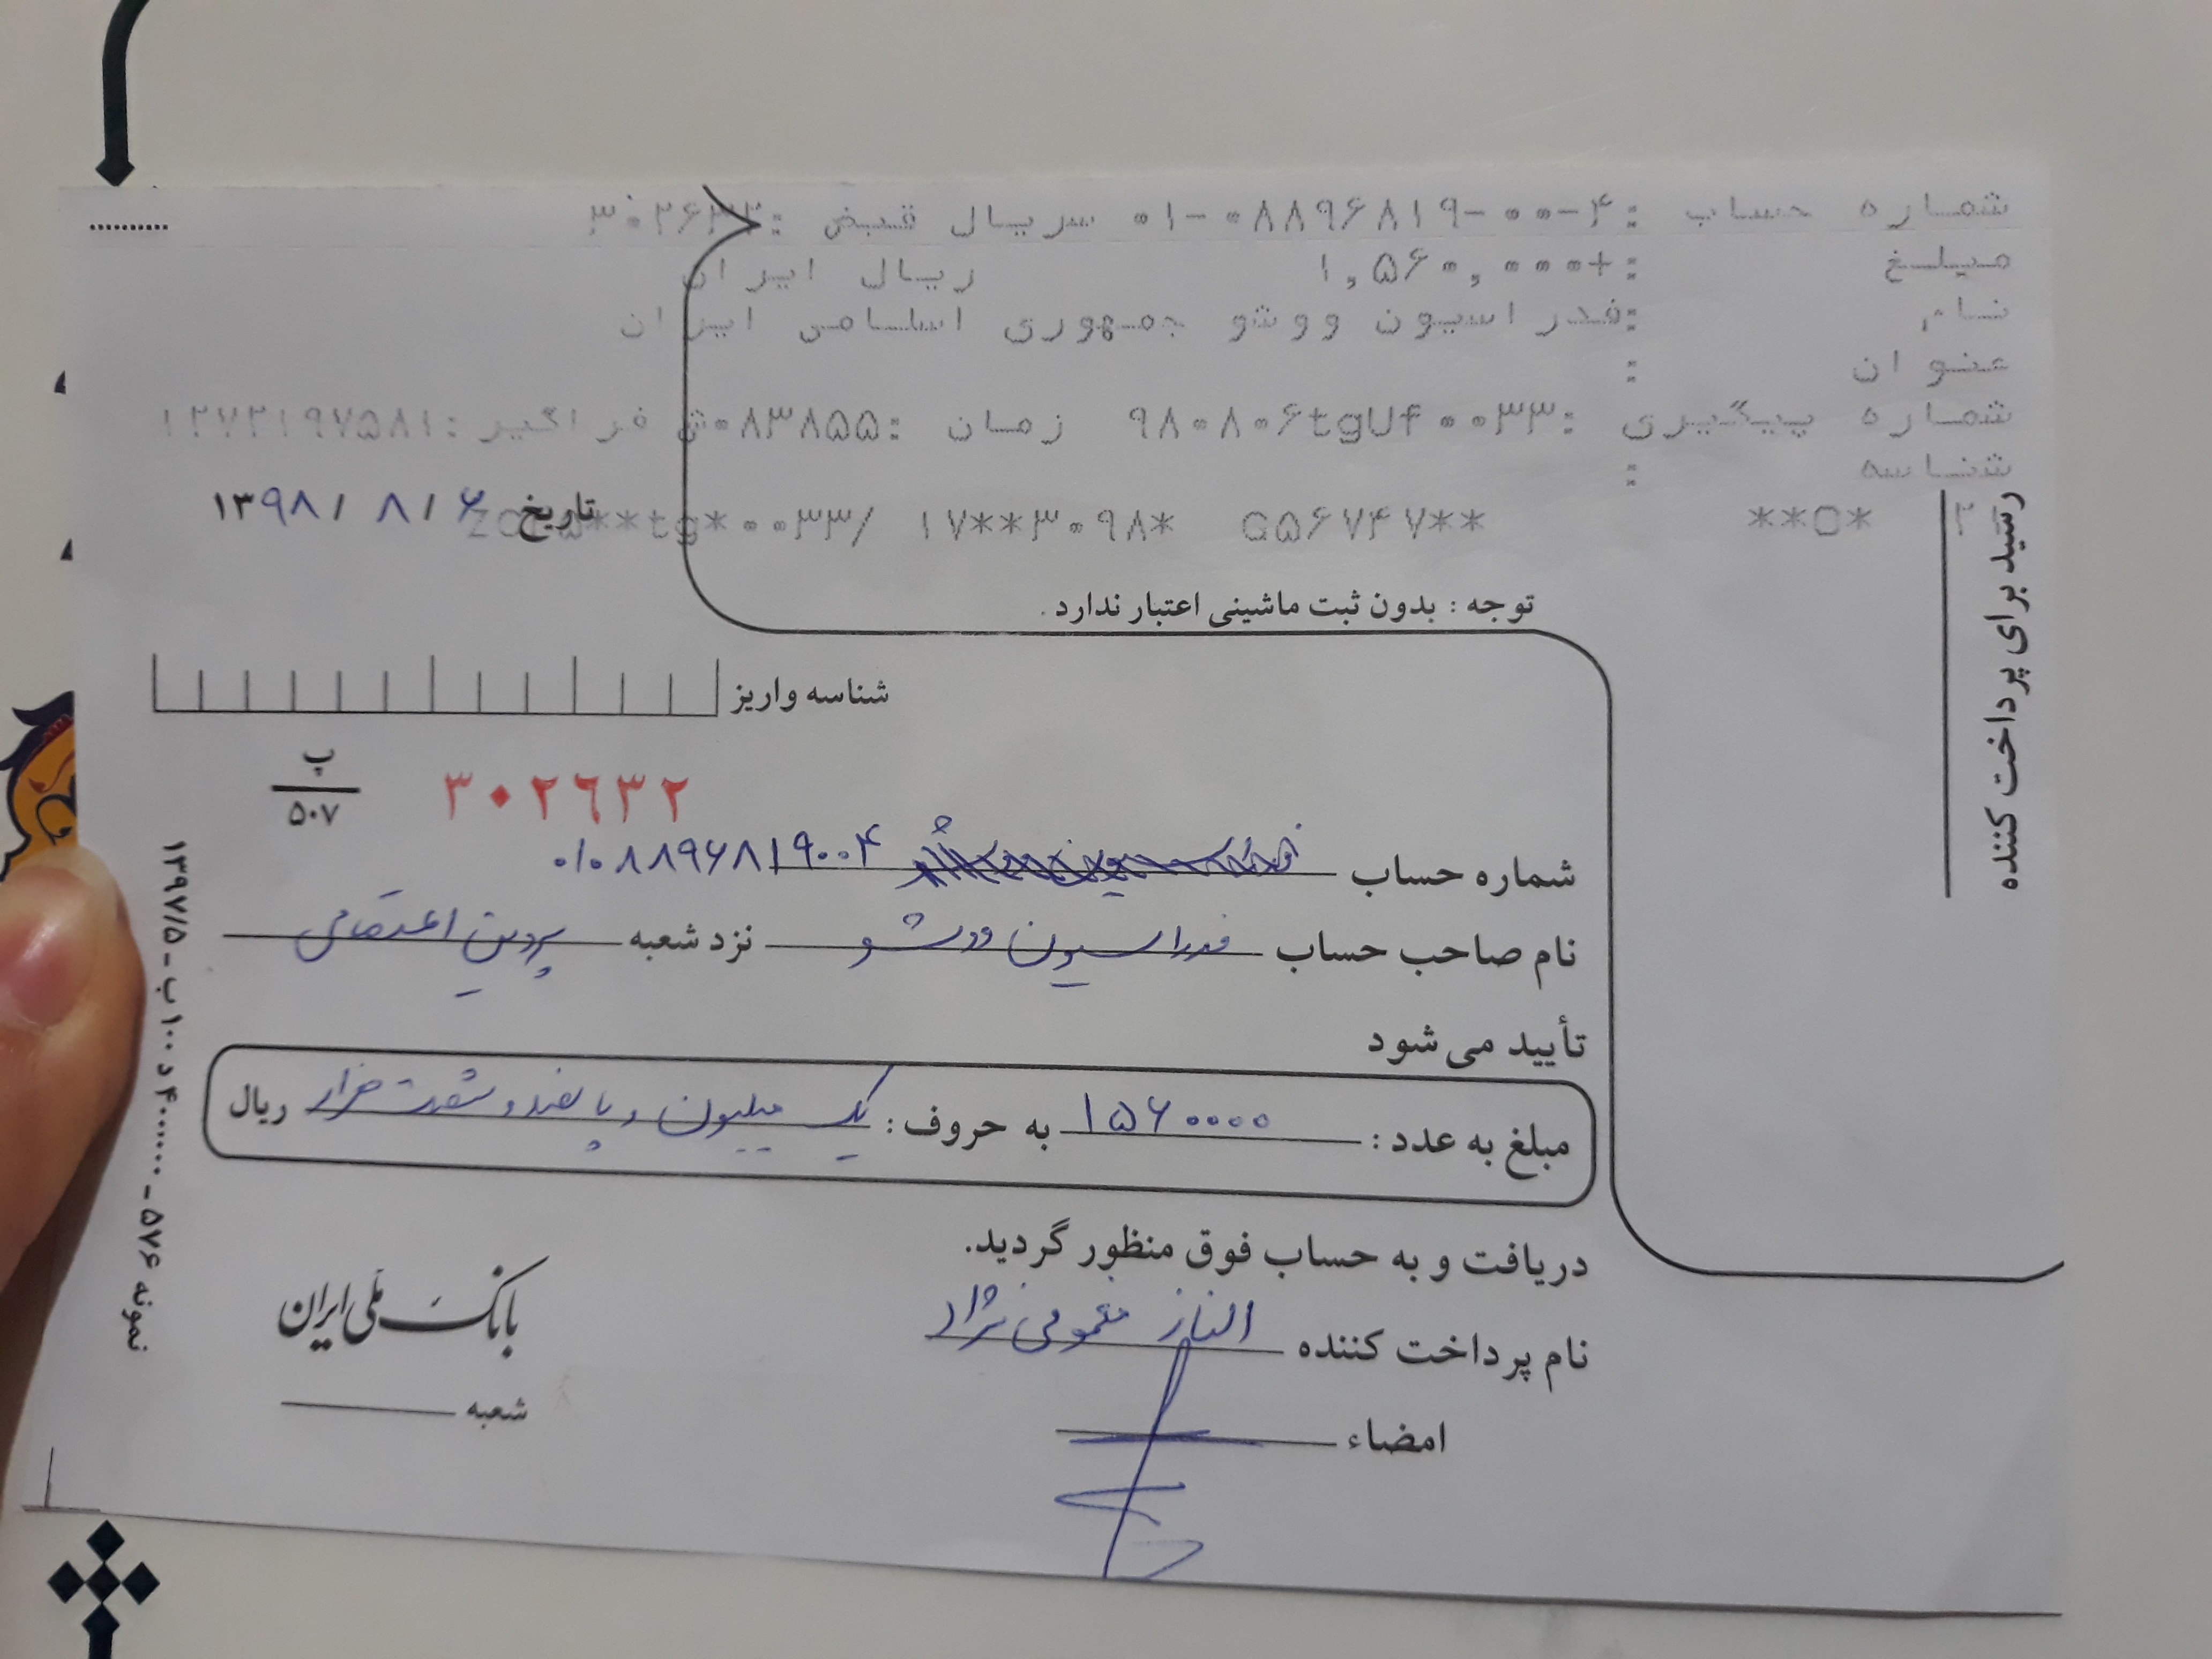 شماره حساب :۰۱-۰۸۸۹۶۸۱۹-۰۰-۴ سریال قبض :۳۰۲۶۳۲
مبلغ :+۱,۵۶۰,۰۰۰ ریال ایران
نام :فدراسیون ووشو جمهوری اسلامی ایران
عنوان :
شماره پیگیری :۹۸۰۸۰۶tgUf۰۰۳۳ زمان :۰۸۳۸۵۵ ش فراگیر :۱۲۷۲۱۹۷۵۸۱
شناسه :
تاریخ ۱۳۹۸/ ۸/ ۶
۲ **O* G۵۶۷۴۷** ۱۷**۳۰۹۸* **tg*۰۰۳۳/
رسید برای پرداخت کننده
توجه : بدون ثبت ماشینی اعتبار ندارد.
شناسه واریز
۳۰۲۶۳۲
پ
۵۰۷
شماره حساب ۰۱۰۸۸۹۶۸۱۹۰۰۴
نام صاحب حساب فدراسیون ووشو نزد شعبه پروین اعتصامی
تأیید می شود
مبلغ به عدد : ۱۵۶۰۰۰۰ به حروف : یک میلیون و پانصد و شصت هزار ریال
دریافت و به حساب فوق منظور گردید.
نام پرداخت کننده الناز نژاد
امضاء
بانک ملی ایران
شعبه
نمونه ۵۷۶ ـ ۴۰۰۰۰۰۰ د ۱۰۰ ب ـ ۱۳۹۷/۵